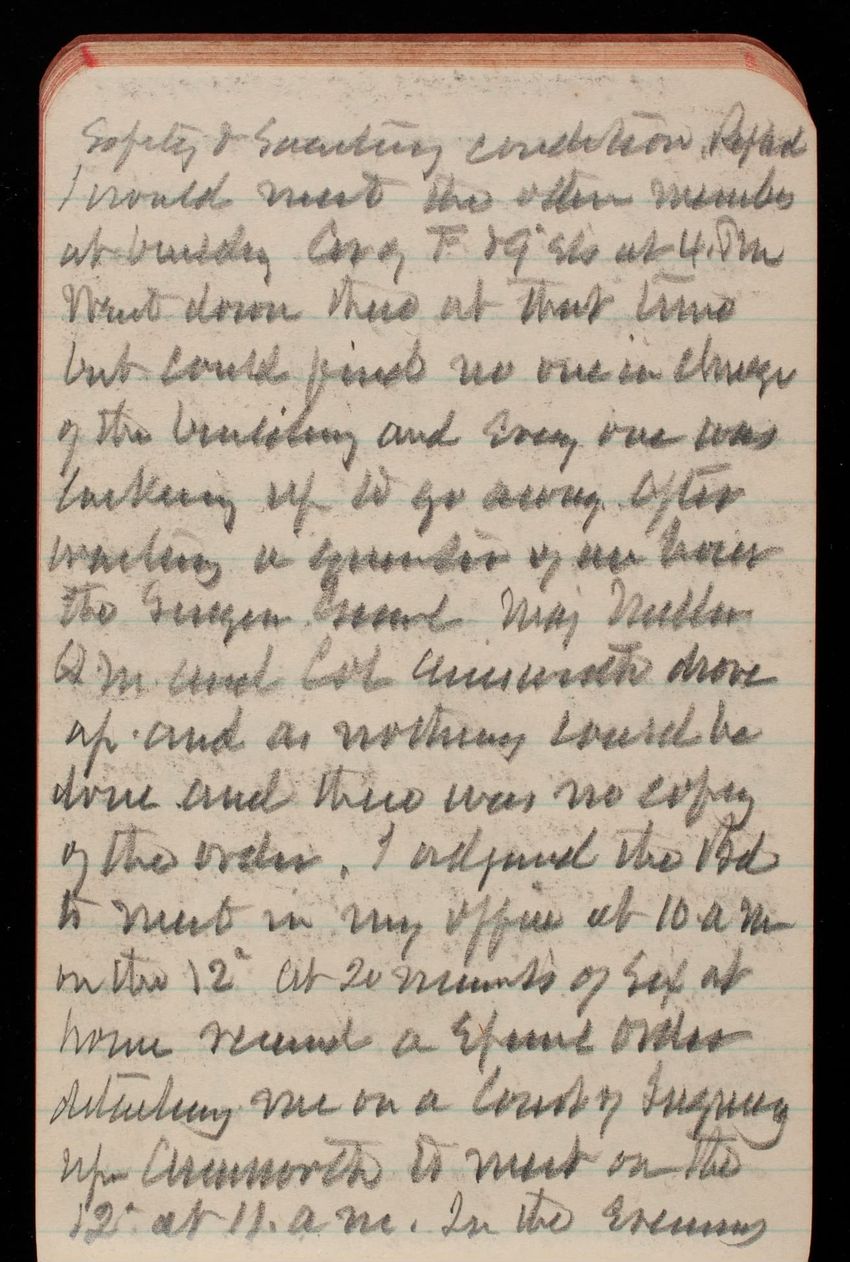 Safety & Sanitary condition. Replied
I would meet the other members
at building Cor of F & 9" Sts at 4. P M
Went down there at that time
but could find no one in charge
of the building and Every one was
locking up to go away. After
waiting a quarter of an hour
the Surgeon Genl Maj Miller
Q M and Col Ainsworth drove
up. and as nothing could be
done and there was no copy
of the order, I adjound the Bd
to meet in my office at 10 a m
on the 12" At 20 minuts of Six at
home received a Special Order
detailing me on a Court of Inquiry
upon Ainsworth to meet on the
12" at 11. a m. In the Evening